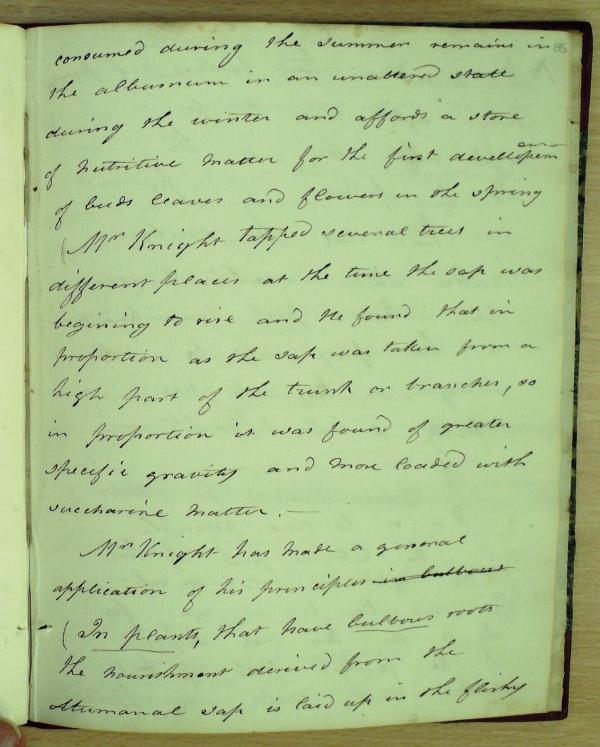 85
consumed during the summer remains in
the alburnum in an unaltered state
during the winter and affords a store
of nutritive matter for the first developem
of buds leaves and flowers in the spring
(Mr Knight tapped several trees in
different places at the time the sap was
begining to rise and he found that in
proportion as the sap was taken from a
high part of the trunk or branches, so
in proportion it was found of greater
specific gravity and more loaded with
saccharine matter. —
Mr Knight has made a general
application of his principles in bulbous
(In plants, that have bulbous roots
the nourishment derived from the
Atumanal sap is laid up in the fleshy